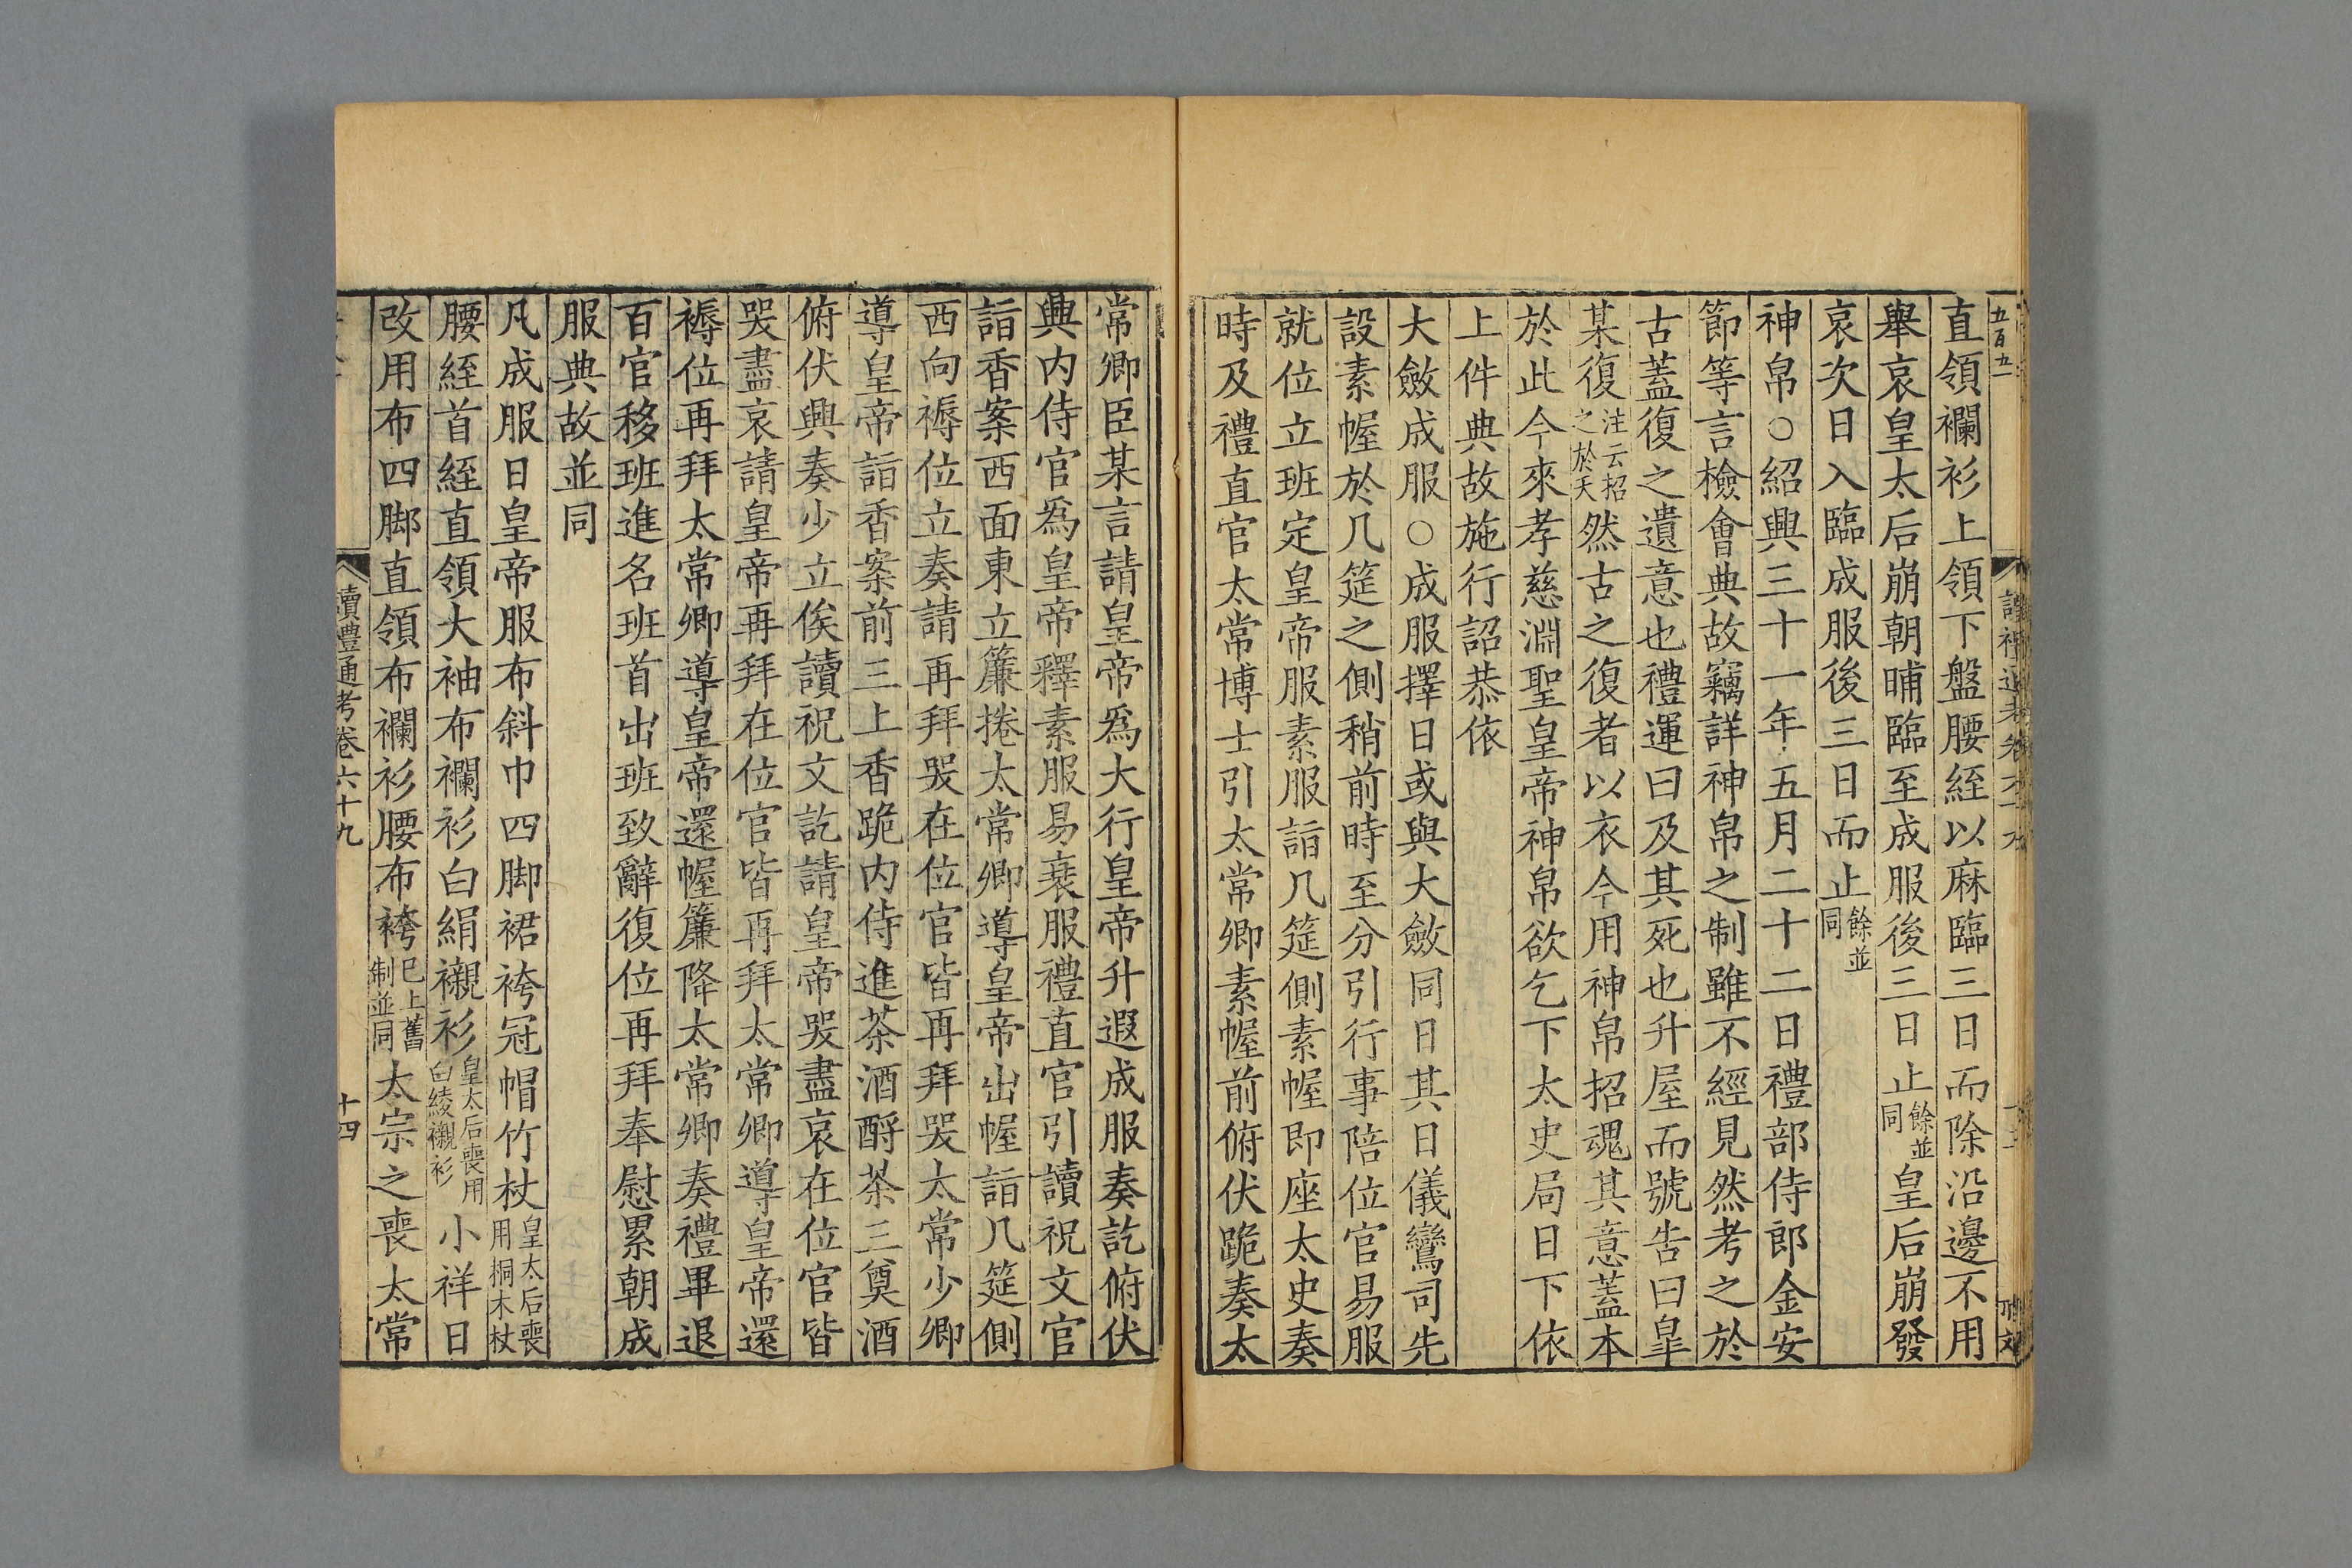 五百五
直領襴衫上領下盤腰絰以麻臨三日而除沿邊不用
舉哀皇太后崩朝晡臨至成服後三日止餘並同皇后崩發
哀次日入臨成服後三日而止餘並同
神帛○紹興三十一年五月二十二日禮部侍郎金安
節等言檢會典故竊詳神帛之制雖不經見然考之於
古蓋復之遺意也禮運曰及其死也升屋而號告曰皐
某復注云招之於天然古之復者以衣今用神帛招魂其意蓋本
於此今來孝慈淵聖皇帝神帛欲乞下太史局日下依
上件典故施行詔恭依
大斂成服○成服擇日或與大斂同日其日儀鸞司先
設素幄於几筵之側稍前時至分引行事陪位官易服
就位立班定皇帝服素服詣几筵側素幄即座太史奏
時及禮直官太常博士引太常卿素幄前俯伏跪奏太
常卿臣某言請皇帝爲大行皇帝升遐成服奏訖俯伏
興内侍官爲皇帝釋素服易衰服禮直官引讀祝文官
詣香案西面東立簾捲太常卿導皇帝出幄詣几筵側
西向褥位立奏請再拜哭在位官皆再拜哭太常少卿
導皇帝詣香案前三上香跪内侍進茶酒酹茶三奠酒
俯伏興奏少立俟讀祝文訖請皇帝哭盡哀在位官皆
哭盡哀請皇帝再拜在位官皆再拜太常卿導皇帝還
褥位再拜太常卿導皇帝還幄簾降太常卿奏禮畢退
百官移班進名班首出班致辭復位再拜奉慰累朝成
服典故並同
凡成服日皇帝服布斜巾四脚裙袴冠帽竹杖皇太后喪用桐木杖
腰絰首絰直領大袖布襴衫白絹襯衫皇太后喪用白綾襯衫小祥日
改用布四脚直領布襴衫腰布袴已上舊制並同太宗之喪太常
讀禮通考卷六十九
十四